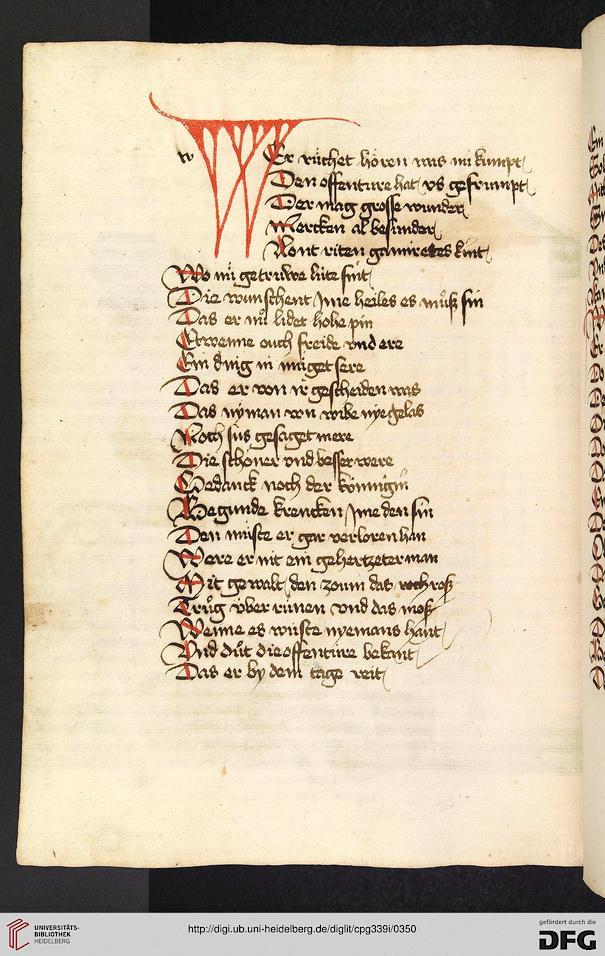 w WEr rüchet hören was im kumpt
Den offenture hat vs gefrumpt
Der mag grosse wunder
Mercken al besunder
Nont riten gamiretes kint
Wo nü getruwe lüte sint
Die wunschent jme heiles es müß sin
Das er nü lidet hohe pin
Etwenne ouch freide vnd ere
Ein ding in müget sere
Das er von ir gescheiden was
Das nyman von wibe nye gelas
Noch sus gesaget mere
Die schöner vnd besser were
Gedanck noch der königin
Begunde krencken jme den sin
Den müste er gar verloren han
Were er nit ein gehertzeter man
Mit gewalt den zoum das roß
Trüg über rünen vnd das moß
Wenne es wiste nyemans hant
Vnd düt die offenture bekant
Das er by dem tage reit
UNIVERSITÄTS-
BIBLIOTHEK
HEIDELBERG
http://digi.ub.uni-heidelberg.de/diglit/cpg339i/0350
gefördert durch die
DFG